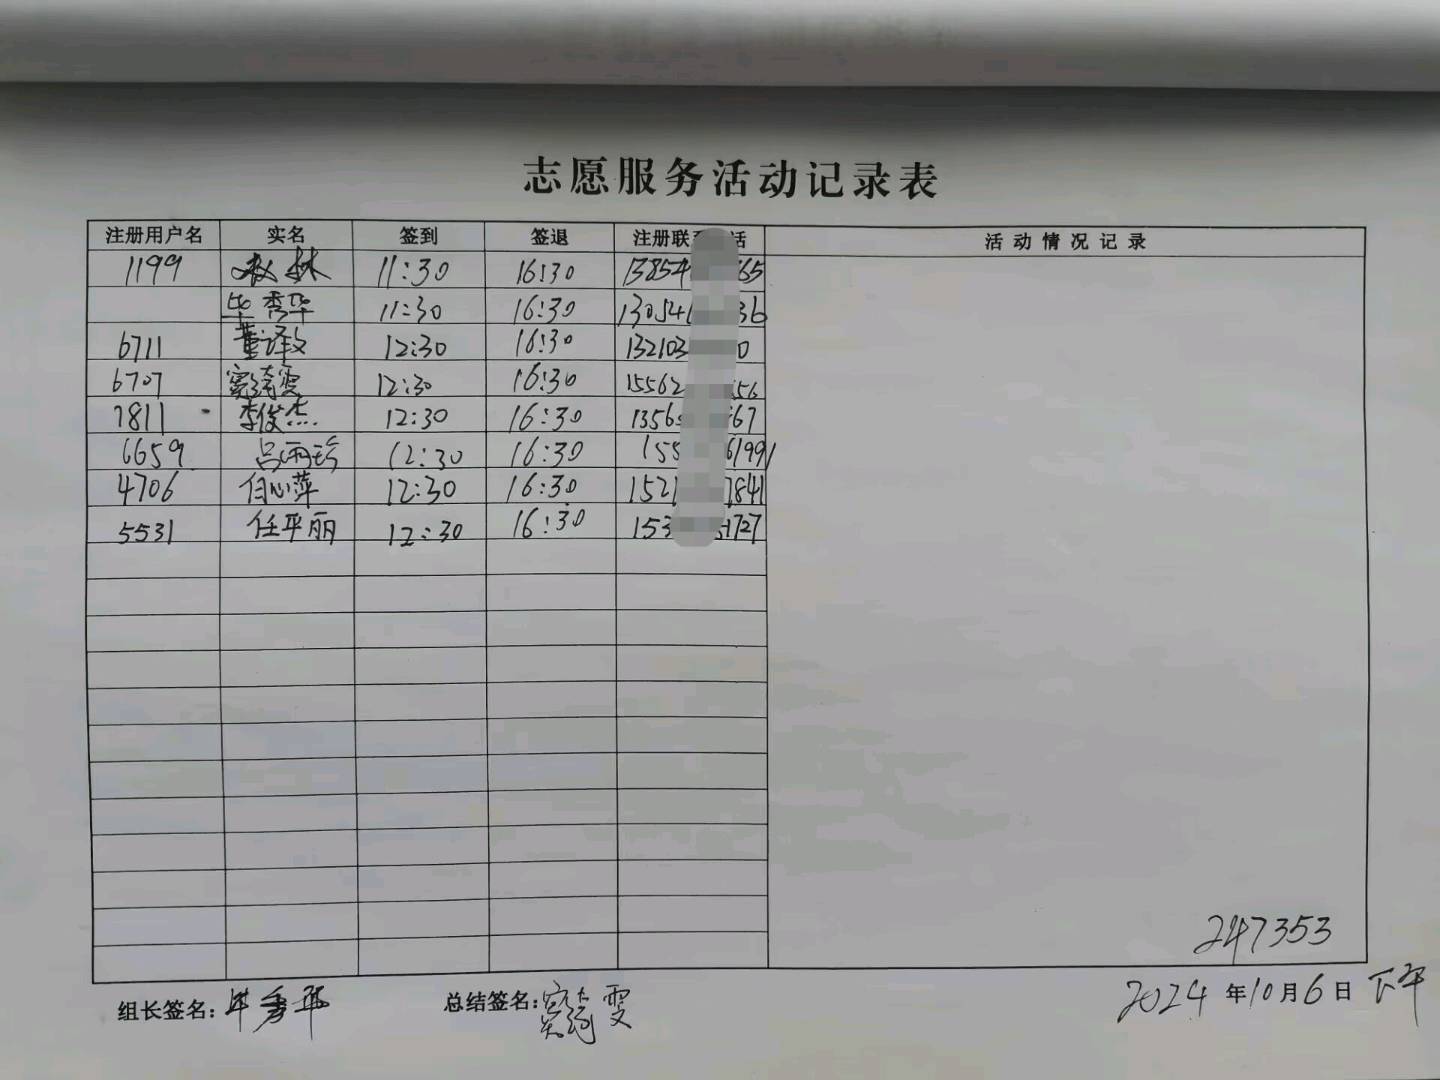 志愿服务活动记录表
注册用户名 实名 签到 签退 注册联 话 活动情况记录
1199 赵林 11:30 16:30 13854 65
毕秀华 11:30 16:30 13054 36
6711 董译敏 12:30 16:30 132103 0
6707 窦琦雯 12:30 16:30 15562 56
7811 李俊杰 12:30 16:30 1356 67
6659 吕雨珍 12:30 16:30 155 61991
4706 付心萍 12:30 16:30 1521 7841
5531 任平丽 12:30 16:30 153 1727
247353
组长签名：毕秀华 总结签名：窦琦雯 2024年10月6日下午